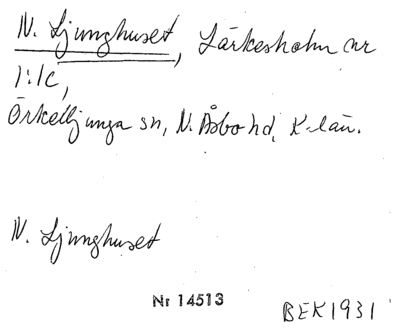 N. Ljunghuset, Lärkesholm nr
1:1c,
Örkelljunga sn, N. Åsbo hd, K-län.
N. Ljunghuset
Nr 14513
BEK1931